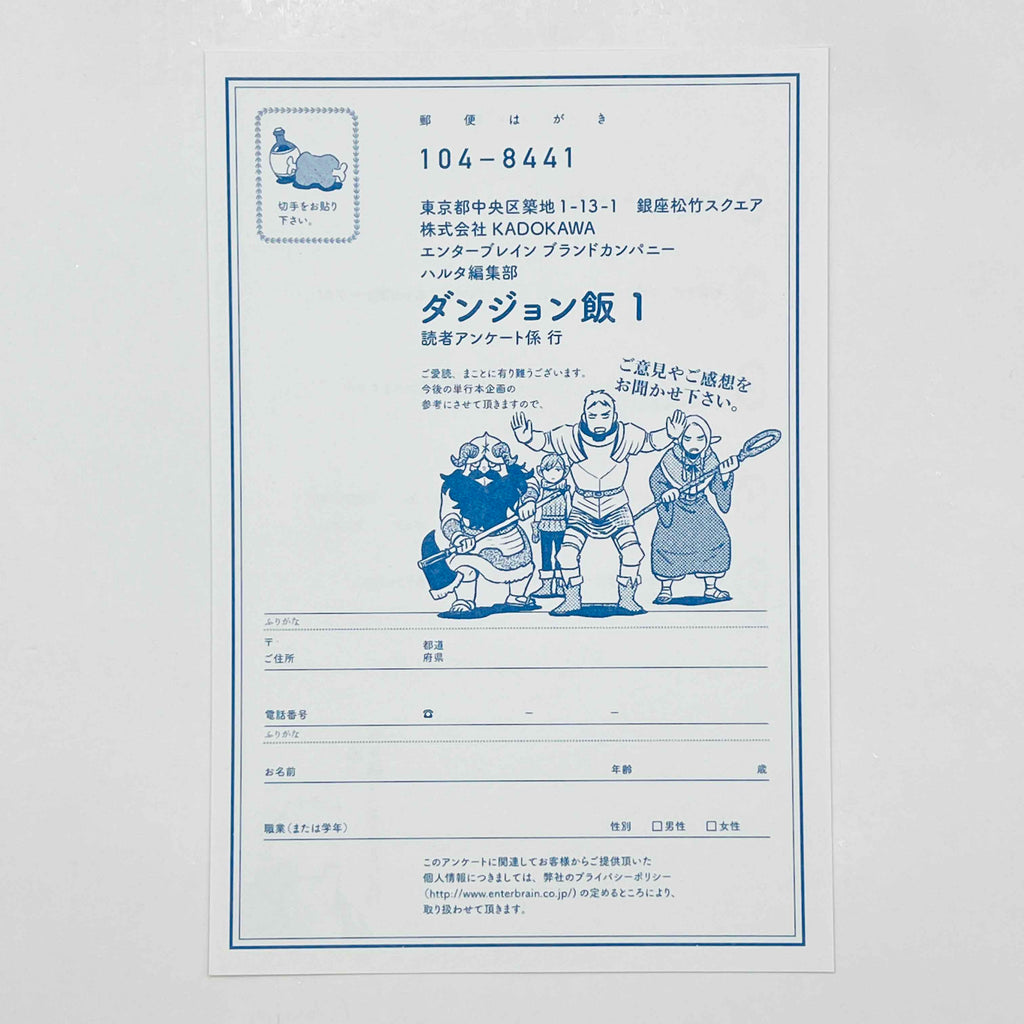 郵便はがき
104-8441
切手をお貼り
下さい。
東京都中央区築地1-13-1 銀座松竹スクエア
株式会社 KADOKAWA
エンターブレイン ブランドカンパニー
ハルタ編集部
ダンジョン飯 1
読者アンケート係 行
ご愛読、まことに有り難うございます。
今後の単行本企画の
参考にさせて頂きますので、
ご意見やご感想を
お聞かせ下さい。
ふりがな
〒
ご住所
都道
府県
電話番号 ☎ − −
ふりがな
お名前 年齢 歳
職業(または学年) 性別 □男性 □女性
このアンケートに関連してお客様からご提供頂いた
個人情報につきましては、弊社のプライバシーポリシー
(http://www.enterbrain.co.jp/)の定めるところにより、
取り扱わせて頂きます。